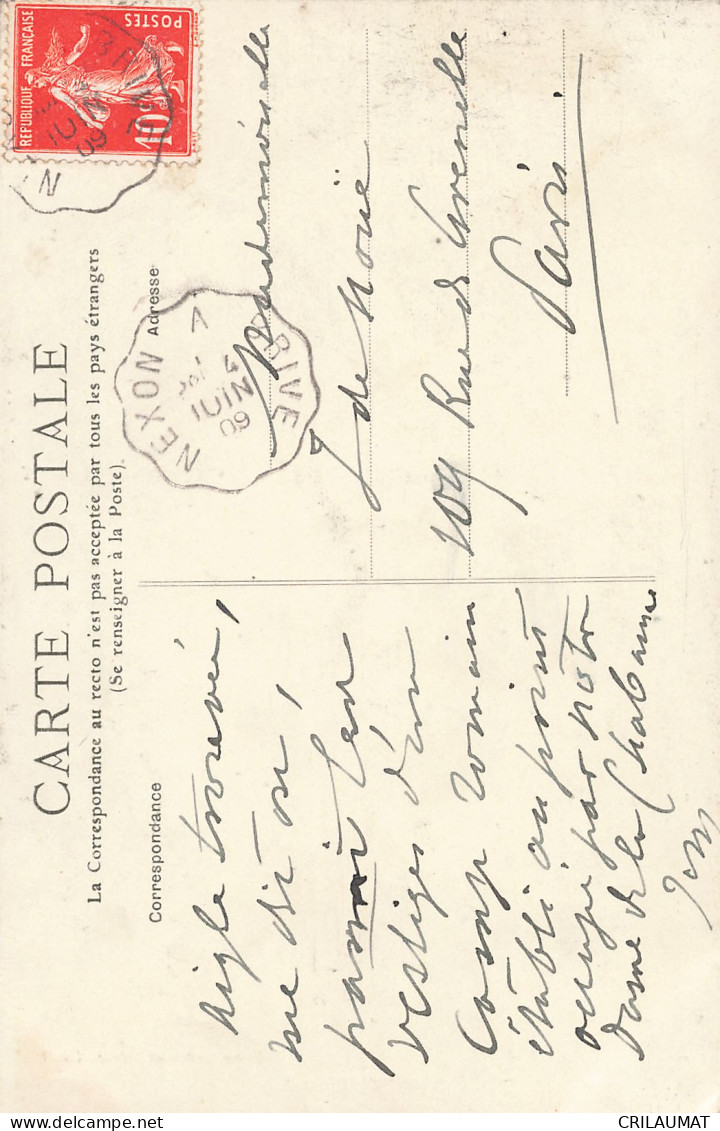 CARTE POSTALE
La Correspondance au recto n'est pas acceptée par tous les pays étrangers
(Se renseigner à la Poste)
Correspondance
Adresse
REPUBLIQUE FRANÇAISE
POSTES
10c
JUIN
09
NEXON A BRIVE
4
JUIN
09
Aigle trouvée,
me dit on,
parmi les
vestiges d'un
Camp romain
établi au point
occupé par notre
Dame de la Chabanne
Mademoiselle
de Noüe
109 Rue de Grenelle
Paris
CRILAUMAT